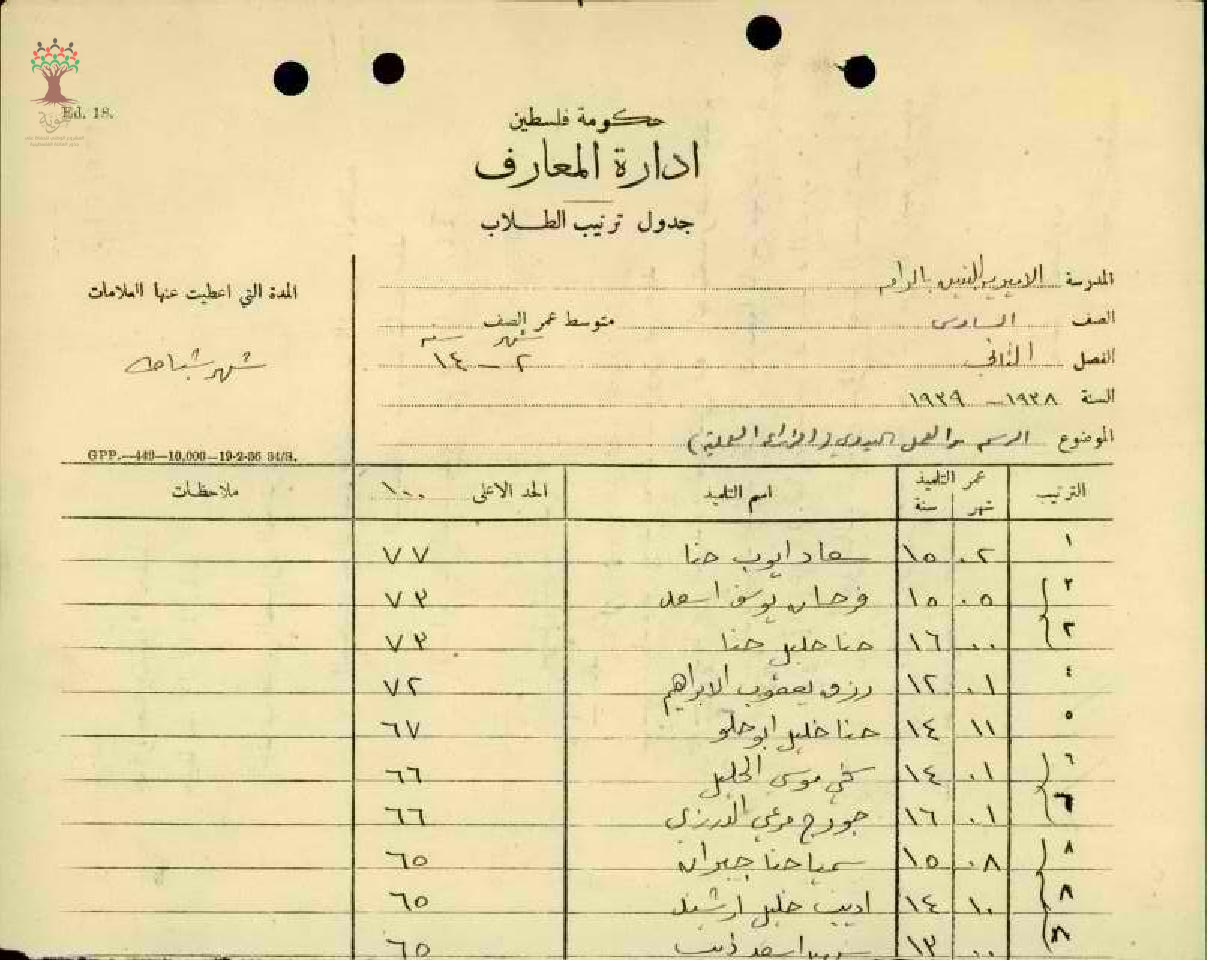 Ed. 18.
هوية
حكومة فلسطين
ادارة المعارف
جدول ترتيب الطلاب
المدة التي اعطيت عنها العلامات
شهر شباط
المدرسة الاميرية للبنين بالرامه
الصف السادس متوسط عمر الصف
شهر سنه
الفصل الثاني ٢ – ١٤
السنة ١٩٣٨ – ١٩٣٩
الموضوع الرسم والعمل اليدوي (الزراعة العملية)
GPP.—449—10,000—19-2-36 94/S.
الترتيب عمر التلميذ شهر سنة اسم التلميذ الحد الاعلى ١٠٠ ملاحظات
١ ٠٢ ١٥ سعاد ايوب حنا ٧٧
٢ ٠٥ ١٥ فرحان يوسف اسعد ٧٣
٢ ٠٠ ١٦ حنا خليل حنا ٧٣
٤ ٠١ ١٢ رزق يعقوب الابراهيم ٧٢
٥ ١١ ١٤ حنا خليل ابو حلو ٦٧
٦ ٠١ ١٤ موسى الخليل ٦٦
٦ ٠١ ١٦ جورج مرعي الدرزي ٦٦
٨ ٠٨ ١٥ سميا حنا جبران ٦٥
٨ ١٠ ١٤ اديب خليل ارشيد ٦٥
٨ ٠٠ ١٣ اسعد ذيب ٦٥